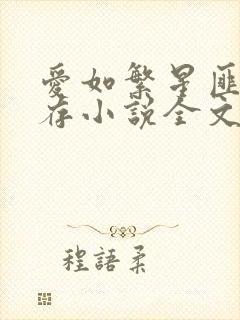 愛如繁星匪
存小說全文
程語柔